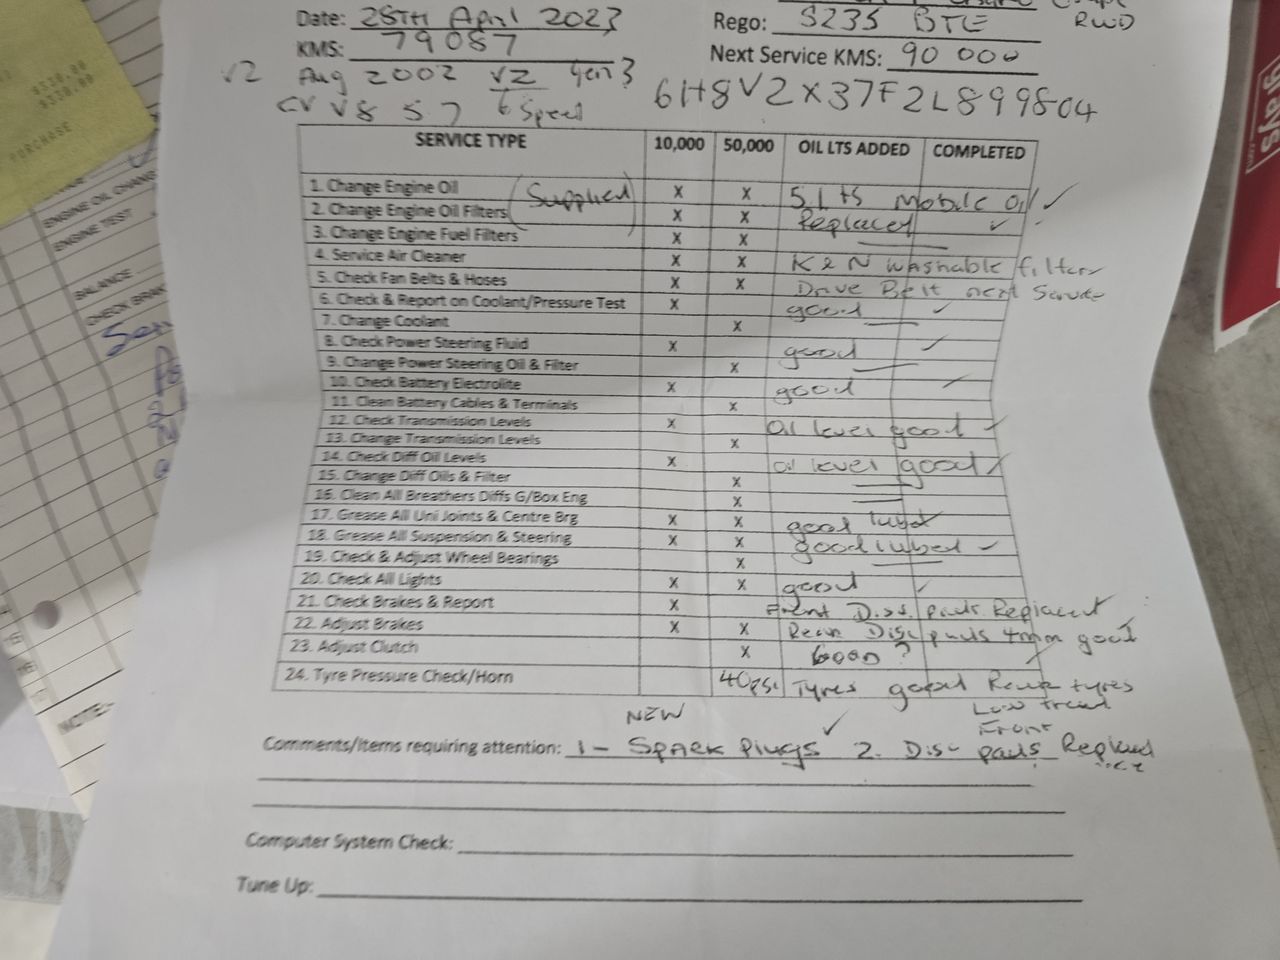 Date: 28TH April 2023
Rego: S235 BTE RWD
KMS: 79087
Next Service KMS: 90 000
V2 Aug 2002 VZ Gen 3
CV V8 5.7 6 Speed
6H8VZX37F2L899804
SERVICE TYPE 10,000 50,000 OIL LTS ADDED COMPLETED
1. Change Engine Oil (Supplied) x x 5 Lts Mobile Oil ✓
2. Change Engine Oil Filters x x Replaced ✓
3. Change Engine Fuel Filters x x
4. Service Air Cleaner x x K&N washable filter
5. Check Fan Belts & Hoses x x Drive Belt next Service
6. Check & Report on Coolant/Pressure Test x good ✓
7. Change Coolant x
8. Check Power Steering Fluid x good ✓
9. Change Power Steering Oil & Filter x
10. Check Battery Electrolite x good ✓
11. Clean Battery Cables & Terminals x
12. Check Transmission Levels x Oil level good ✓
13. Change Transmission Levels x
14. Check Diff Oil Levels x oil level good ✓
15. Change Diff Oils & Filter x
16. Clean All Breathers Diffs G/Box Eng x
17. Grease All Uni Joints & Centre Brg x x good lubed ✓
18. Grease All Suspension & Steering x x good lubed ✓
19. Check & Adjust Wheel Bearings x
20. Check All Lights x x good ✓
21. Check Brakes & Report x Front Disc pads Replaced ✓
22. Adjust Brakes x x Rear Disc pads 4mm good
23. Adjust Clutch x Good ? ✓
24. Tyre Pressure Check/Horn 40psi Tyres good Rear tyres
Low tread
NEW ✓ Front
Comments/Items requiring attention: 1 - Spark Plugs 2. Disc pads Replaced
Computer System Check:
Tune Up:
ENGINE OIL CHANG
ENGINE TEST
BALANCE
CHECK BRAK
PURCHASE
$330.00